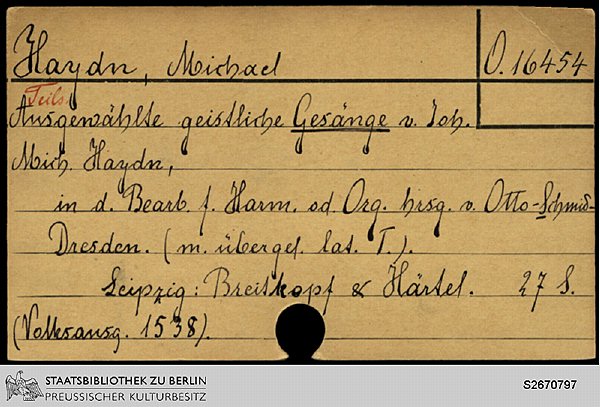 Haydn, Michael
O. 16454
Teils.
Ausgewählte geistliche Gesänge v. Joh.
Mich. Haydn,
in d. Bearb. f. Harm. od. Org. hrsg. v. Otto-Schmid-
Dresden. (m. übergel. lat. T.).
Leipzig: Breitkopf & Härtel. 27 S.
(Volksausg. 1538).
STAATSBIBLIOTHEK ZU BERLIN
PREUSSISCHER KULTURBESITZ
S2670797